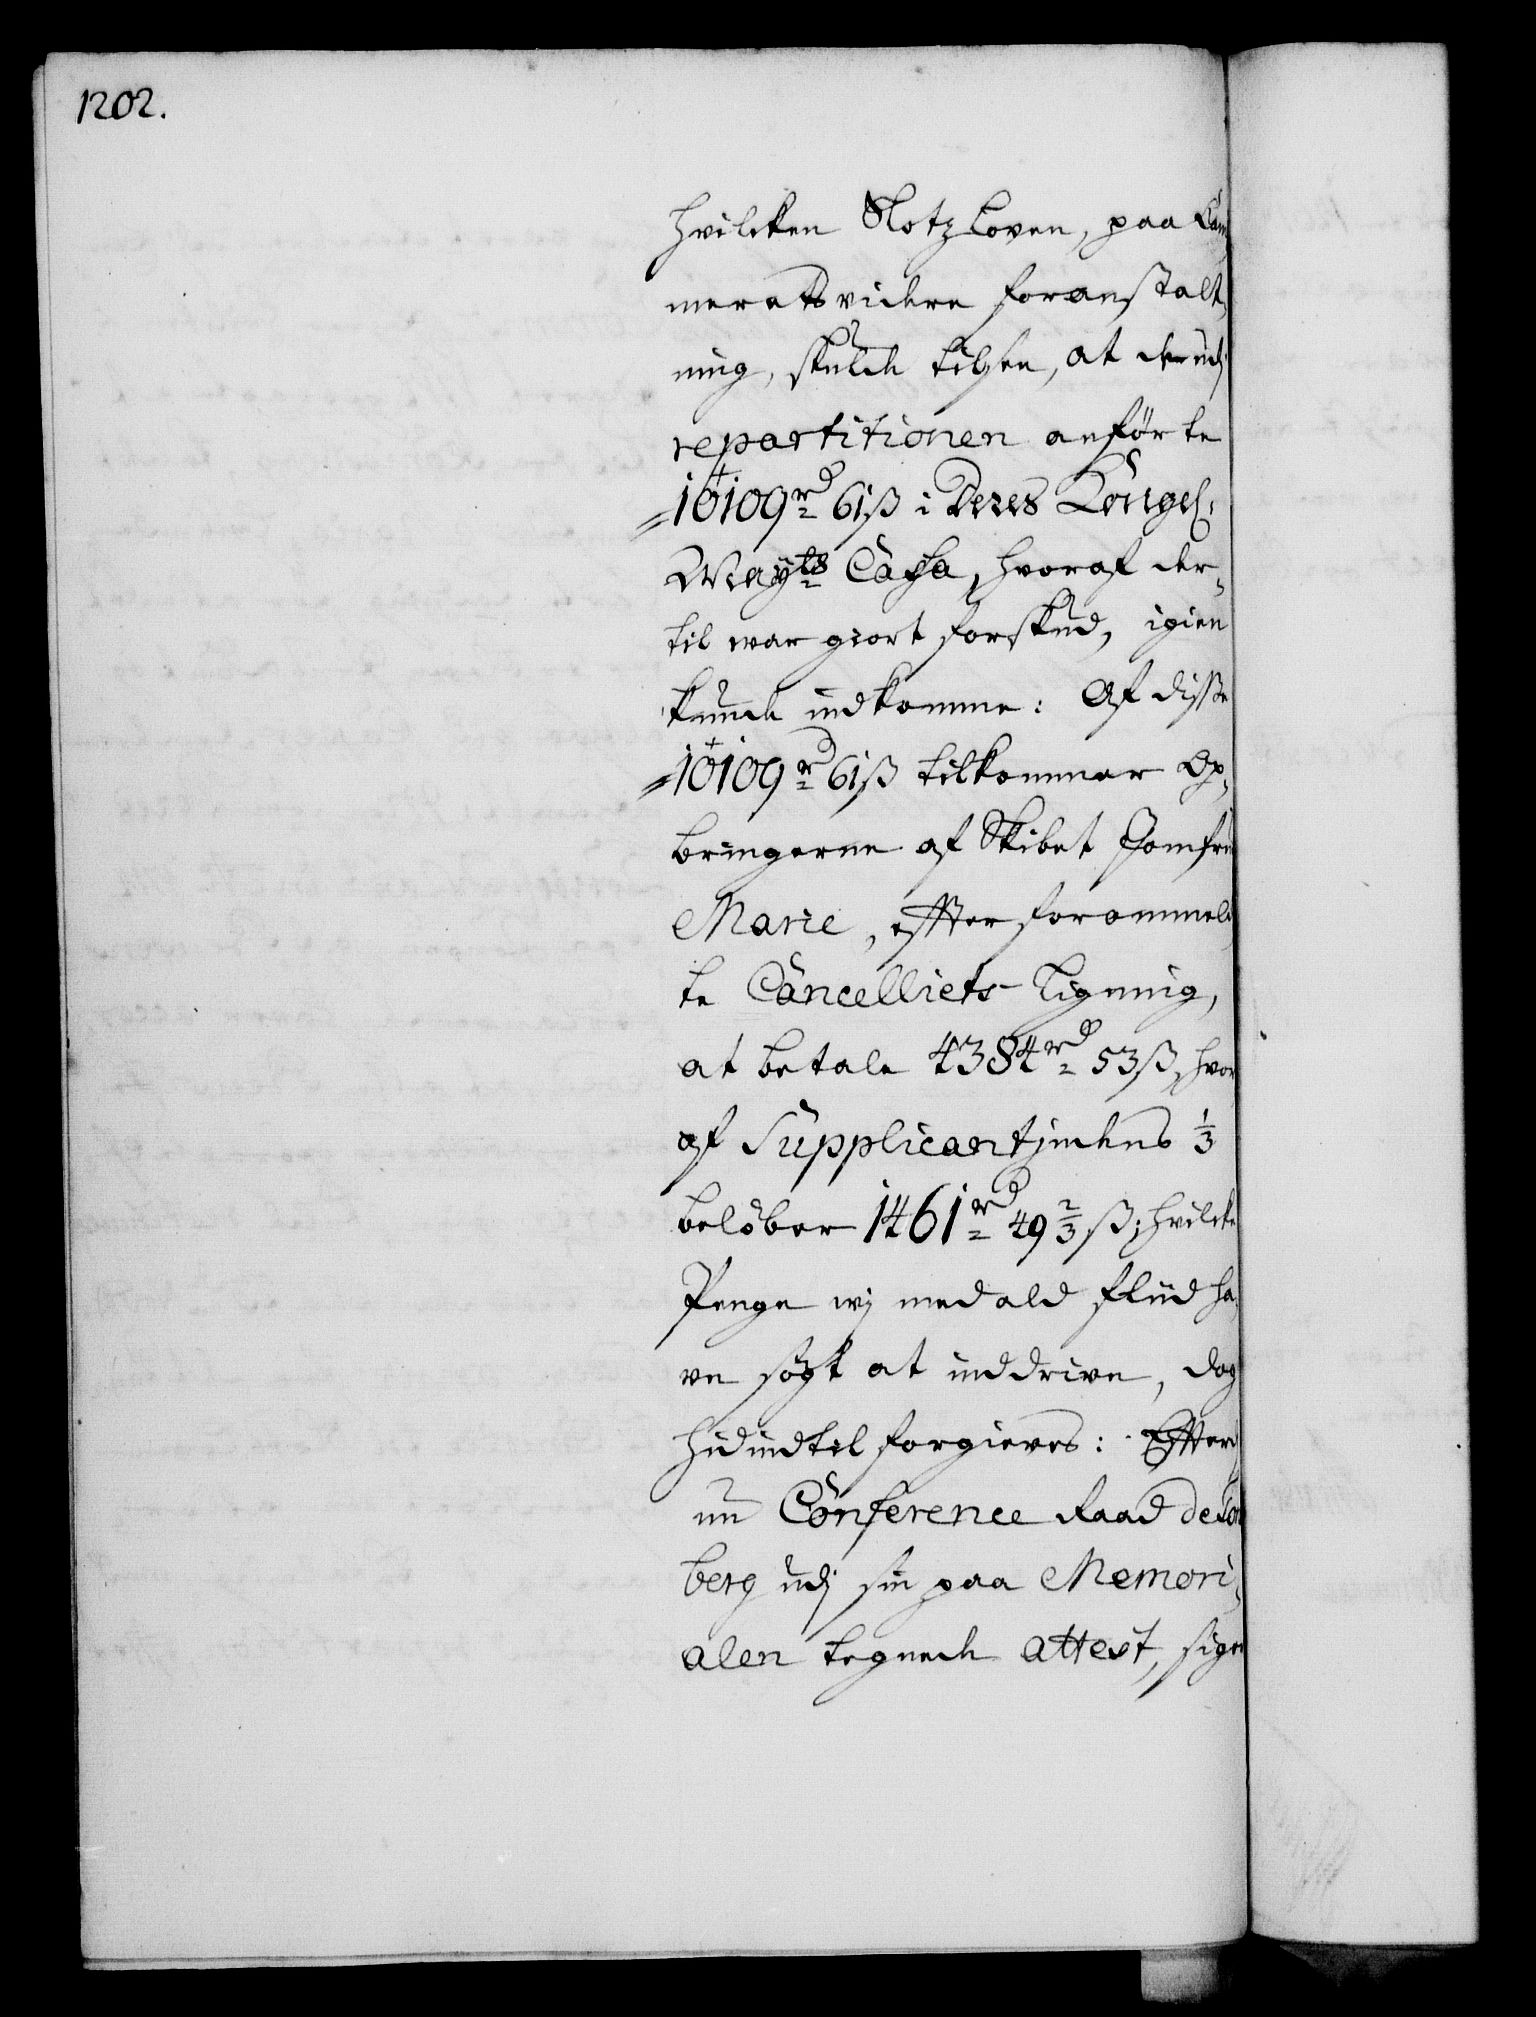 1202.
hvilcken Slotzloven, paa Cam¬
merets videre foranstalt¬
ning, skulde tilsee, at de udj
repartitionen anförte
10109 rd 61 ß i Deres Kongel:
Mayts Cassa, hvoraf der¬
til war giort forskud, igien
kunde indkomme: Af disse
10109 rd 61 ß tilkommer Op¬
bringerne af Skibet Jomfru
Marie, efter forommeld¬
te Cancelliets Ligning,
at betale 4384 rd 53 ß, hvor
af Supplicantindens 1/3
belöber 1461 rd 49 2/3 ß; hvilcke
Penge wj med ald fliid ha¬
ve sögt at inddrive, dog
hidindtil forgieves: Efterd
nu Conference Raad
berg udj sin paa Memori¬
alen tegnede attest, siger